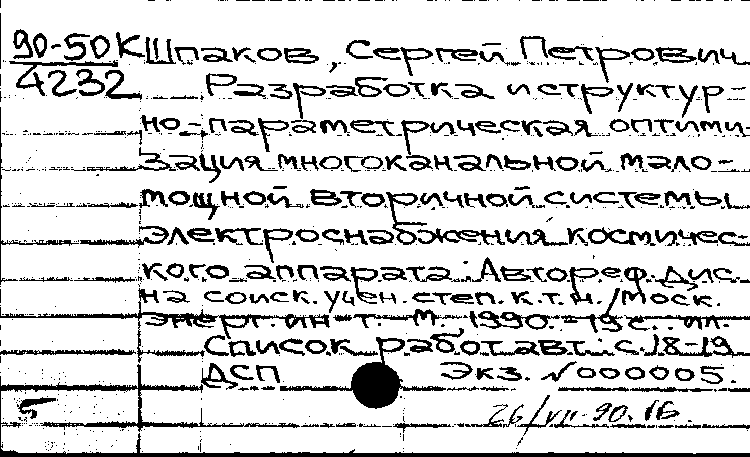 90-50К Шпаков, Сергей Петрович
4232 Разработка и структур-
но-параметрическая оптими-
зация многоканальной мало-
мощной вторичной системы
электроснабжения космичес-
кого аппарата: Автореф. дис.
на соиск. учен. степ. к.т.н. / Моск.
энерг. ин-т. - М., 1990. - 19 с.: ил.
Список работ авт.: с. 18-19
ДСП Экз. N 000005.
5
26/VII-90. 1Б.